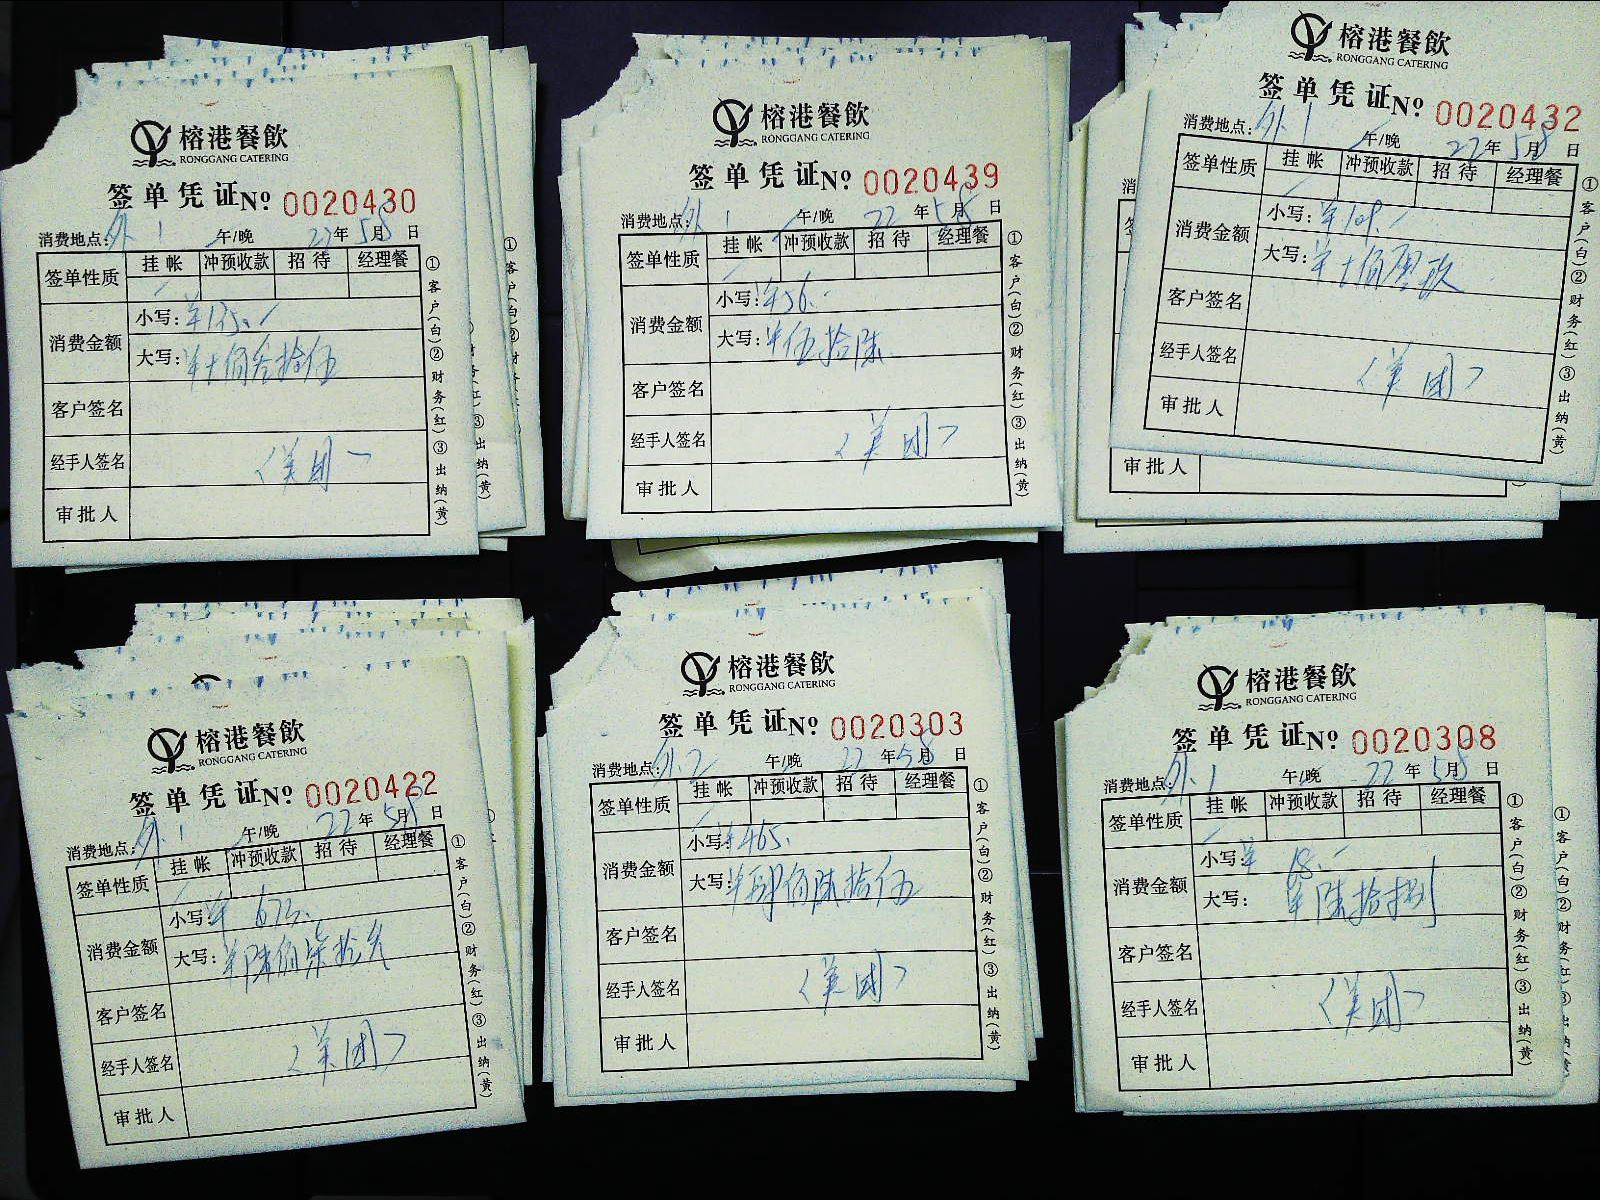 榕港餐飲
RONGGANG CATERING
签单凭证 No 0020430
消费地点: 外1 午/晚 22年5月8日
签单性质 挂帐 冲预收款 招待 经理餐
消费金额 小写: ¥135.
大写: ¥壹佰叁拾伍
客户签名
经手人签名 <美团>
审批人
①客户(白)②财务(红)③出纳(黄)
榕港餐飲
RONGGANG CATERING
签单凭证 No 0020439
消费地点: 外1 午/晚 22年5月8日
签单性质 挂帐 冲预收款 招待 经理餐
消费金额 小写: ¥56.
大写: ¥伍拾陆
客户签名
经手人签名 <美团>
审批人
①客户(白)②财务(红)③出纳(黄)
榕港餐飲
RONGGANG CATERING
签单凭证 No 0020432
消费地点: 外1 午/晚 22年5月8日
签单性质 挂帐 冲预收款 招待 经理餐
消费金额 小写: ¥109.
大写: ¥壹佰零玖
客户签名
经手人签名 <美团>
审批人
①客户(白)②财务(红)③出纳(黄)
审批人
榕港餐飲
RONGGANG CATERING
签单凭证 No 0020422
消费地点: 外1 午/晚 22年5月8日
签单性质 挂帐 冲预收款 招待 经理餐
消费金额 小写: ¥
大写: ¥陆佰柒拾
客户签名
经手人签名 <美团>
审批人
①客户(白)②财务(红)③出纳(黄)
榕港餐飲
RONGGANG CATERING
签单凭证 No 0020303
消费地点: 外2 午/晚 22年5月8日
签单性质 挂帐 冲预收款 招待 经理餐
消费金额 小写: ¥465.
大写: ¥肆佰陆拾伍
客户签名
经手人签名 <美团>
审批人
①客户(白)②财务(红)③出纳(黄)
榕港餐飲
RONGGANG CATERING
签单凭证 No 0020308
消费地点: 外1 午/晚 22年5月8日
签单性质 挂帐 冲预收款 招待 经理餐
消费金额 小写: ¥68.
大写: ¥陆拾捌
客户签名
经手人签名 <美团>
审批人
①客户(白)②财务(红)③出纳(黄)